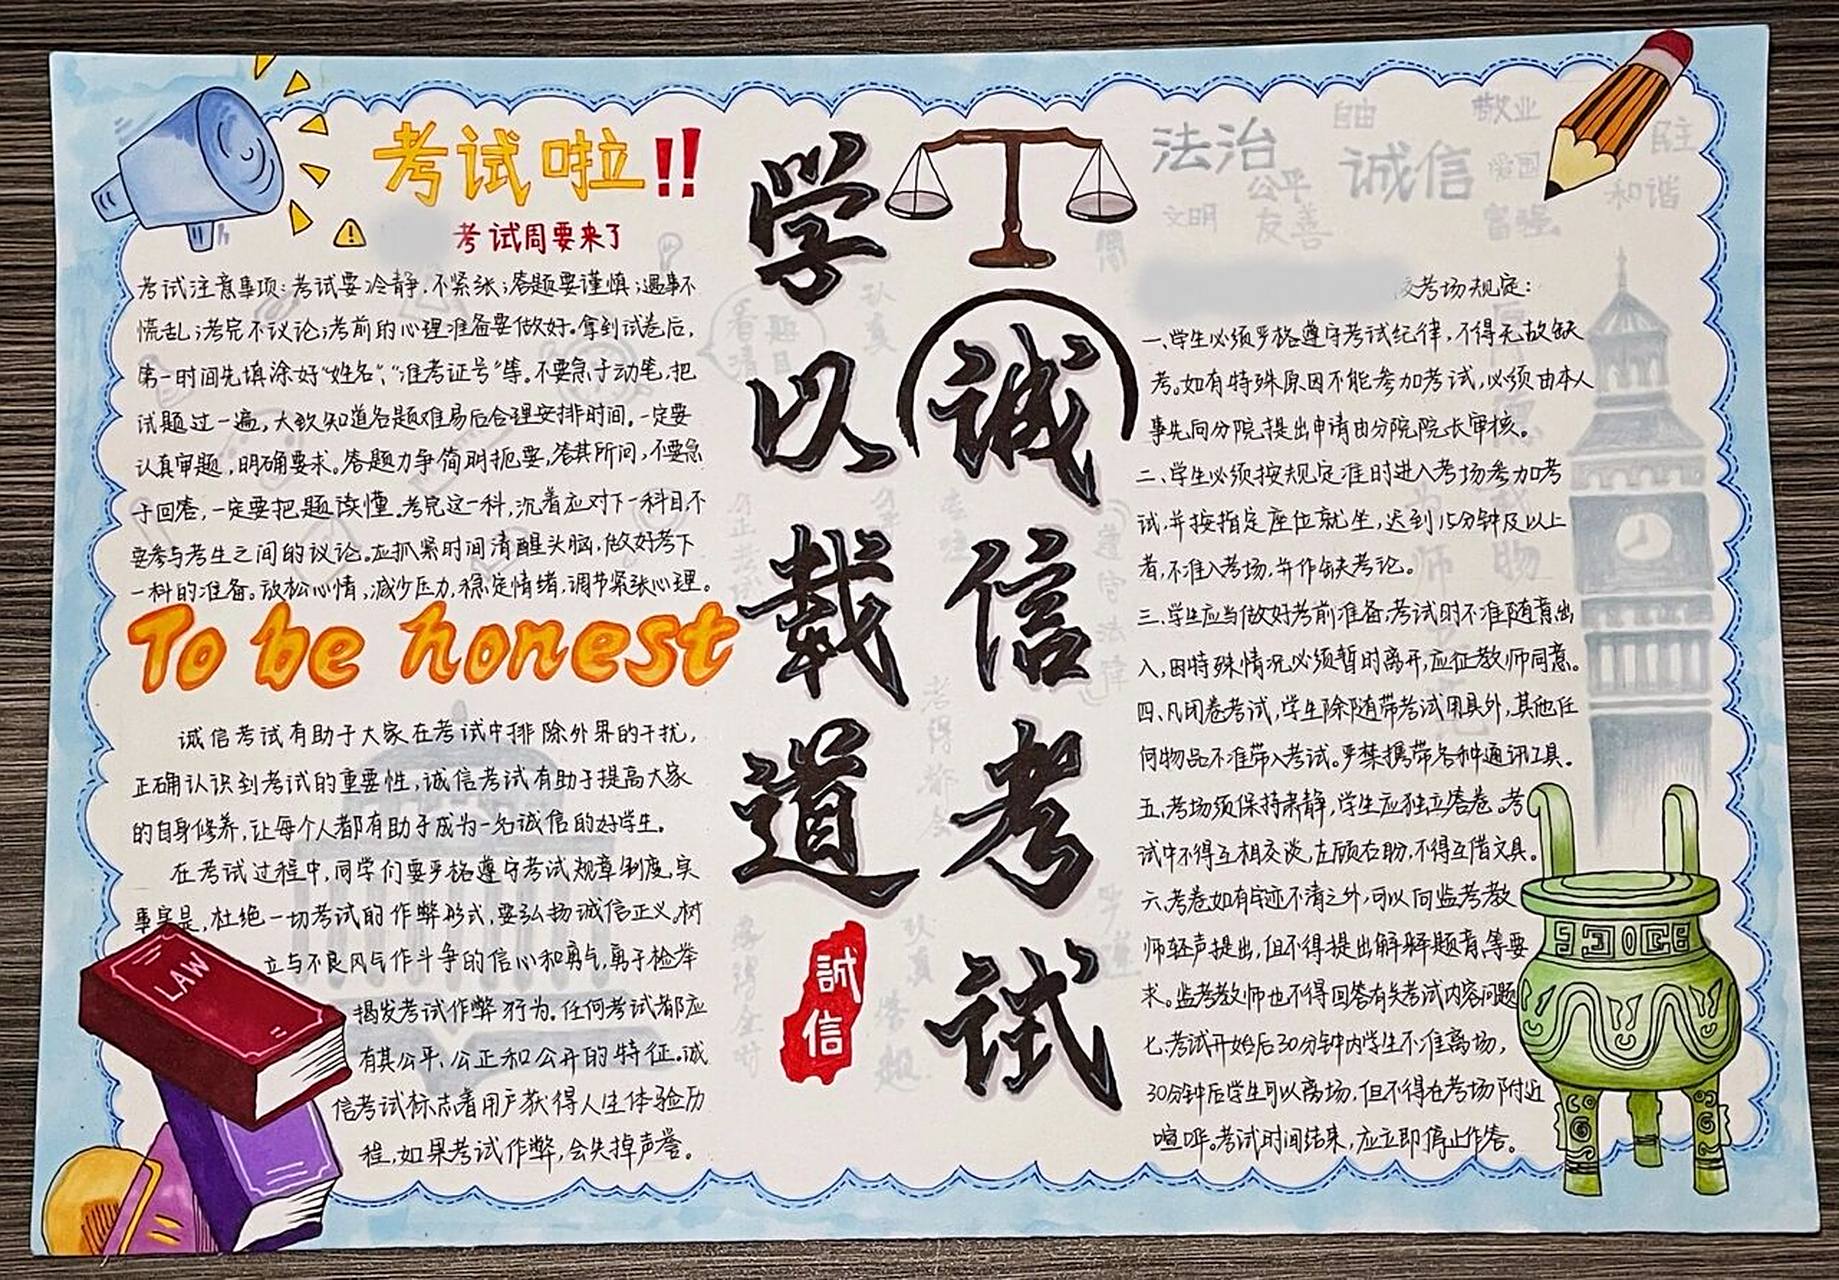 考试啦!!
考试周要来了
考试注意事项:考试要冷静,不紧张;答题要谨慎;遇事不
慌乱;考完不议论;考前的心理准备要做好。拿到试卷后,
第一时间先填涂好“姓名”,“准考证号”等。不要急于动笔,把
试题过一遍,大致知道各题难易后合理安排时间。一定要
认真审题,明确要求。答题力争简明扼要,答其所问,不要急
于回答,一定要把题读懂。考完这一科,沉着应对下一科目,不
要参与考生之间的议论。应抓紧时间清醒头脑,做好考下
一科的准备。放松心情,减少压力,稳定情绪,调节紧张心理。
To be honest
诚信考试有助于大家在考试中排除外界的干扰,
正确认识到考试的重要性,诚信考试有助于提高大家
的自身修养,让每个人都有助于成为一名诚信的好学生。
在考试过程中,同学们要严格遵守考试规章制度,实
事实是,杜绝一切考试的作弊形式,要弘扬诚信正义。树
立与不良风气作斗争的信心和勇气,勇于检举
揭发考试作弊行为。任何考试都应
有其公平、公正和公开的特征。诚
信考试标志着用户获得人生体验历
程,如果考试作弊,会失掉声誉。
LAW
学以载道
誠信考试
誠信
法治
自由
敬业
民主
公平
诚信
爱国
和谐
文明
友善
富强
考场规定:
一、学生必须严格遵守考试纪律,不得无故缺
考。如有特殊原因不能参加考试,必须由本人
事先向分院提出申请由分院院长审核。
二、学生必须按规定准时进入考场参加考
试,并按指定座位就坐,迟到15分钟及以上
者,不准入考场,并作缺考论。
三、学生应当做好考前准备,考试时不准随意出
入,因特殊情况必须暂时离开,应征教师同意。
四、凡闭卷考试,学生除随带考试用具外,其他任
何物品不准带入考试。严禁携带各种通讯工具。
五、考场须保持肃静,学生应独立答卷。考
试中不得互相交谈,左顾右盼,不得互借文具。
六、考卷如有字迹不清之外,可以向监考教
师轻声提出,但不得提出解释题意,等要
求。监考教师也不得回答有关考试内容问题
七、考试开始后30分钟内学生不准离场,
30分钟后学生可以离场,但不得在考场附近
喧哗。考试时间结束,应立即停止作答。